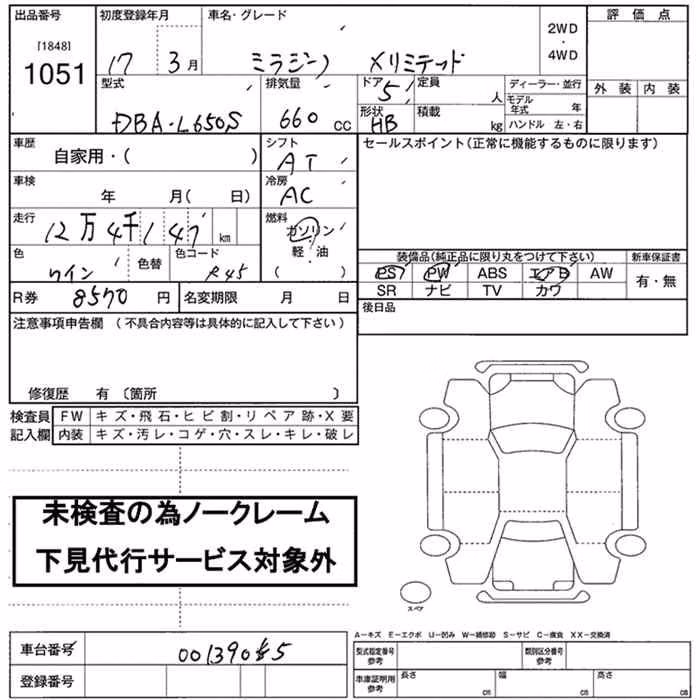 出品番号 初度登録年月 車名・グレード 評価点
[1848] 2WD
1051 17 3月 ミラジーノ メリミテッド ・
4WD
型式 排気量 ドア 定員 ディーラー・並行 外装 内装
5 人 モデル年式 年
DBA-L650S 660 CC 形状 HB 積載 kg ハンドル 左・右
車歴 シフト セールスポイント(正常に機能するものに限ります)
自家用・( ) AT
車検 冷房
年 月( 日) AC
走行 燃料
12万4千147 km ガソリン
軽・油
( )
色 色替 色コード 装備品(純品に限り丸をつけて下さい) 新車保証書
ワイン R45 PS PW ABS エアB AW 有・無
SR ナビ TV カワ
R券 8570円 名変期限 月 日 後日品
注意事項申告欄 (不具合内容等は具体的に記入して下さい)
修復歴 有 〔箇所 〕
検査員 FW キズ・飛石・ヒビ割・リペア跡・X要
記入欄 内装 キズ・汚レ・コゲ・穴・スレ・キレ・破レ
未検査の為ノークレーム
下見代行サービス対象外
スペア
A-キズ E-エクボ U-凹み W-補修跡 S-サビ C-腐食 XX-交換済
車台番号 型式指定番号 参考 類別区分番号 参考
登録番号 車庫証明用 参考 長さ cm 幅 cm 高さ cm